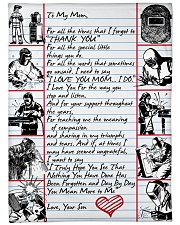 To My Mom,
For all the times that I forget to
"THANK YOU"
For all the special little
things you do.
For all the words that sometimes
go unsaid, I need to say
"I LOVE YOU MOM... I DO."
I Love You For the way you
stop and listen.
And for your support throughout
the years.
For teaching me the meaning
of compassion
and sharing in my triumphs
and tears. And if, at times I
may have seemed ungrateful,
I want to say
I Truly Hope You See That
Nothing You Have Done Has
Been Forgotten and Day By Day
You Mean More to Me
Love, Your Son